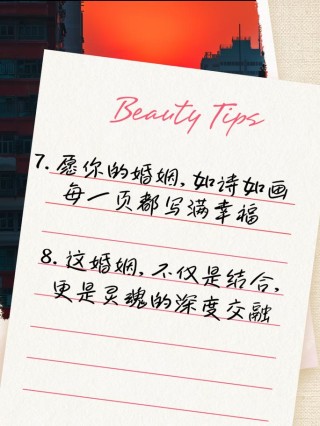 Beauty Tips
7. 愿你的婚姻, 如诗如画
每一页都写满幸福
8. 这婚姻, 不仅是结合,
更是灵魂的深度交融